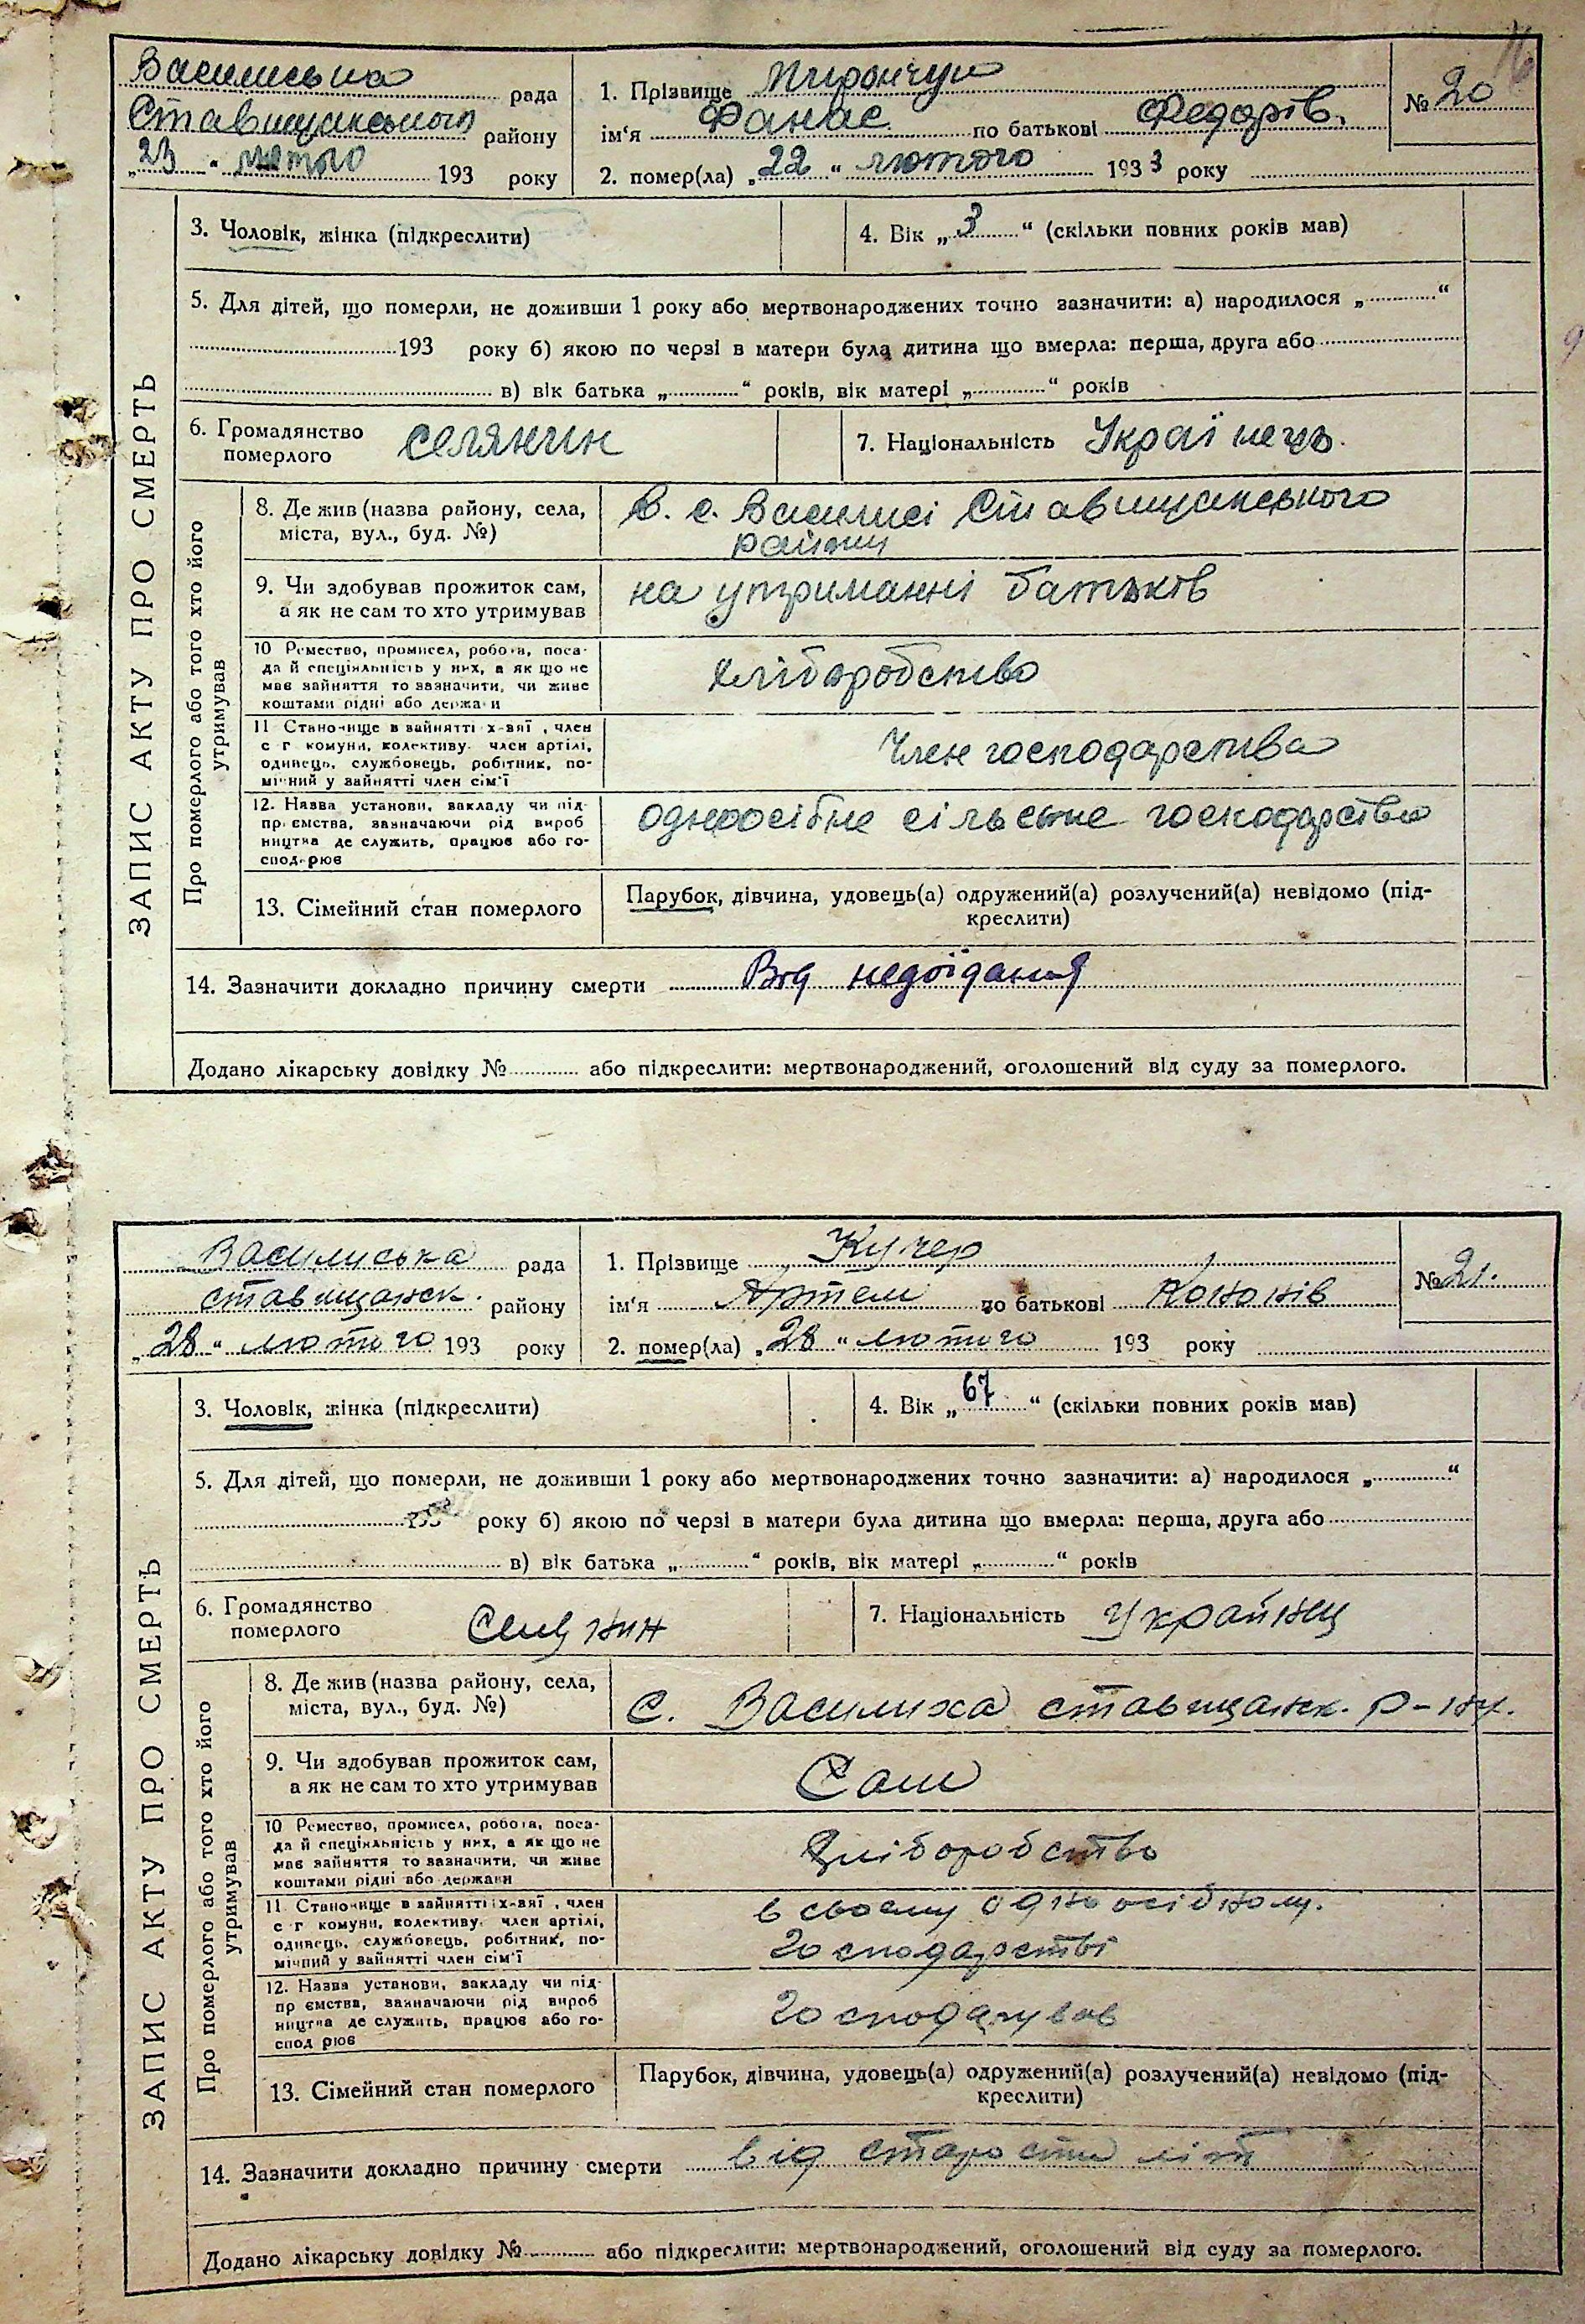 16
Василиська рада
Ставищанського району
„23“ лютого 193 року
1. Прізвище Мирончук
ім‘я Фанас по батькові Федорів.
2. помер(ла) „22“ лютого 1933 року
№ 20
ЗАПИС АКТУ ПРО СМЕРТЬ
3. Чоловік, жінка (підкреслити)
4. Вік „3“ (скільки повних років мав)
5. Для дітей, що померли, не доживши 1 року або мертвонароджених точно зазначити: а) народилося „ “
193 року б) якою по черзі в матери була дитина що вмерла: перша, друга або
в) вік батька „ “ років, вік матері „ “ років
6. Громадянство
померлого селянин
7. Національність Українець.
Про померлого або того хто його
утримував
8. Де жив (назва району, села,
міста, вул., буд. №)
В. с. Василисі Ставищанського
району
9. Чи здобував прожиток сам,
а як не сам то хто утримував
на утриманні батьків
10 Ремество, промисел, робота, поса-
да й спеціяльність у них, а як що не
має зайняття то зазначити, чи живе
коштами рідні або держави
хліборобство
11 Становище в зайнятті х-вяї , член
с г комуни, колективу. член артілі,
одинець, службовець, робітник, по-
мічний у зайнятті член сім‘ї
Член господарства
12. Назва установи, закладу чи під-
приємства, зазначаючи рід вироб
ництва де служить, працює або го-
сподарює
одноосібне сільське господарство
13. Сімейний стан померлого
Парубок, дівчина, удовець(а) одружений(а) розлучений(а) невідомо (під-
креслити)
14. Зазначити докладно причину смерти Від недоїдання
Додано лікарську довідку № або підкреслити: мертвонароджений, оголошений від суду за померлого.
Василиська рада
ставищанск. району
„28“ лютого 193 року
1. Прізвище Кучер
ім‘я Артем по батькові Кононів
2. помер(ла) „28“ лютого 193 року
№ 21.
ЗАПИС АКТУ ПРО СМЕРТЬ
3. Чоловік, жінка (підкреслити)
4. Вік „67“ (скільки повних років мав)
5. Для дітей, що померли, не доживши 1 року або мертвонароджених точно зазначити: а) народилося „ “
193 року б) якою по черзі в матери була дитина що вмерла: перша, друга або
в) вік батька „ “ років, вік матері „ “ років
6. Громадянство
померлого Селянин
7. Національність Українец
Про померлого або того хто його
утримував
8. Де жив (назва району, села,
міста, вул., буд. №)
С. Василиха ставищанск. р-ну.
9. Чи здобував прожиток сам,
а як не сам то хто утримував
Сам
10 Ремество, промисел, робота, поса-
да й спеціяльність у них, а як що не
має зайняття то зазначити, чи живе
коштами рідні або держави
Хліборобство
11 Становище в зайнятті х-вяї , член
с г комуни, колективу. член артілі,
одинець, службовець, робітник, по-
мічний у зайнятті член сім‘ї
в своєму одноосібному.
господарстві
12. Назва установи, закладу чи під-
пр ємства, зазначаючи рід вироб
ництва де служить, працює або го-
спод рює
господарував
13. Сімейний стан померлого
Парубок, дівчина, удовець(а) одружений(а) розлучений(а) невідомо (під-
креслити)
14. Зазначити докладно причину смерти від старости літ
Додано лікарську довідку № або підкреслити: мертвонароджений, оголошений від суду за померлого.